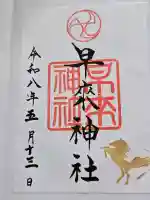 早来神社
早来
神社
令和八年五月十三日